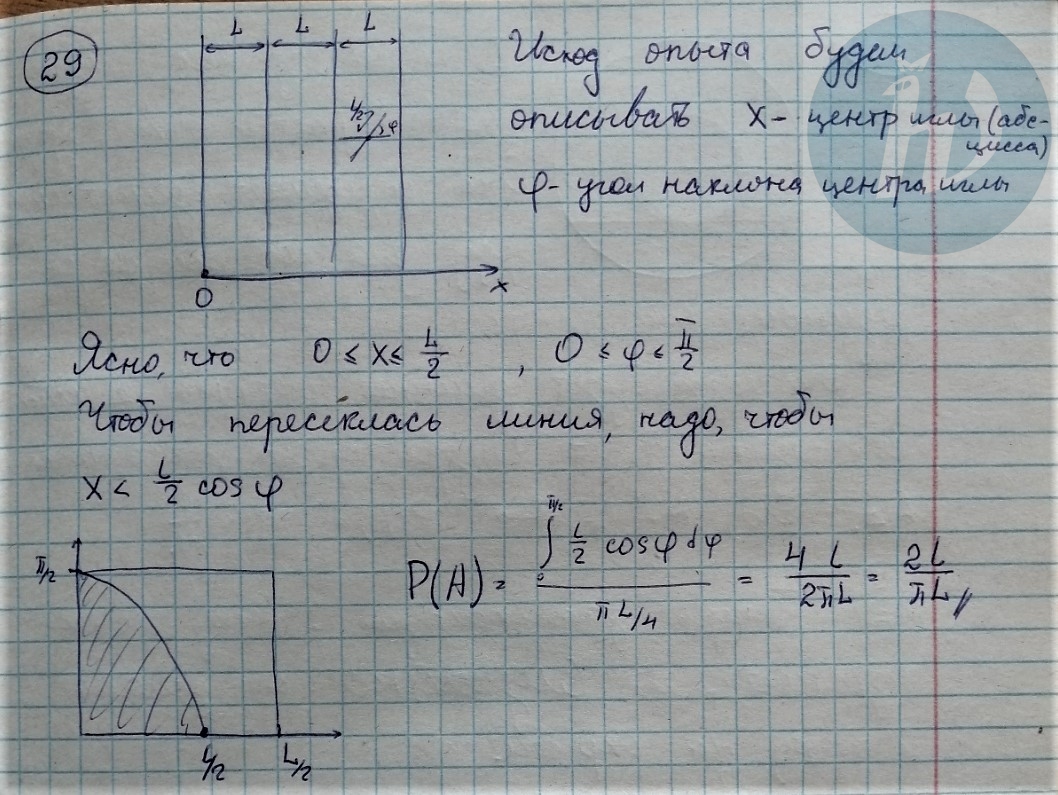 29
L L L
Исход опыта будем
описывать x - центр иглы (абс-
цисса)
φ - угол наклона центра иглы
l/2 φ
0 x
Ясно, что 0 ≤ x ≤ L/2 , 0 ≤ φ ≤ π/2
Чтобы пересеклась линия, надо, чтобы
x < l/2 cos φ
P(A) = ∫₀^{π/2} l/2 cos φ dφ / πL/4 = 4 l / 2πL = 2l / πL
π/2
l/2 L/2